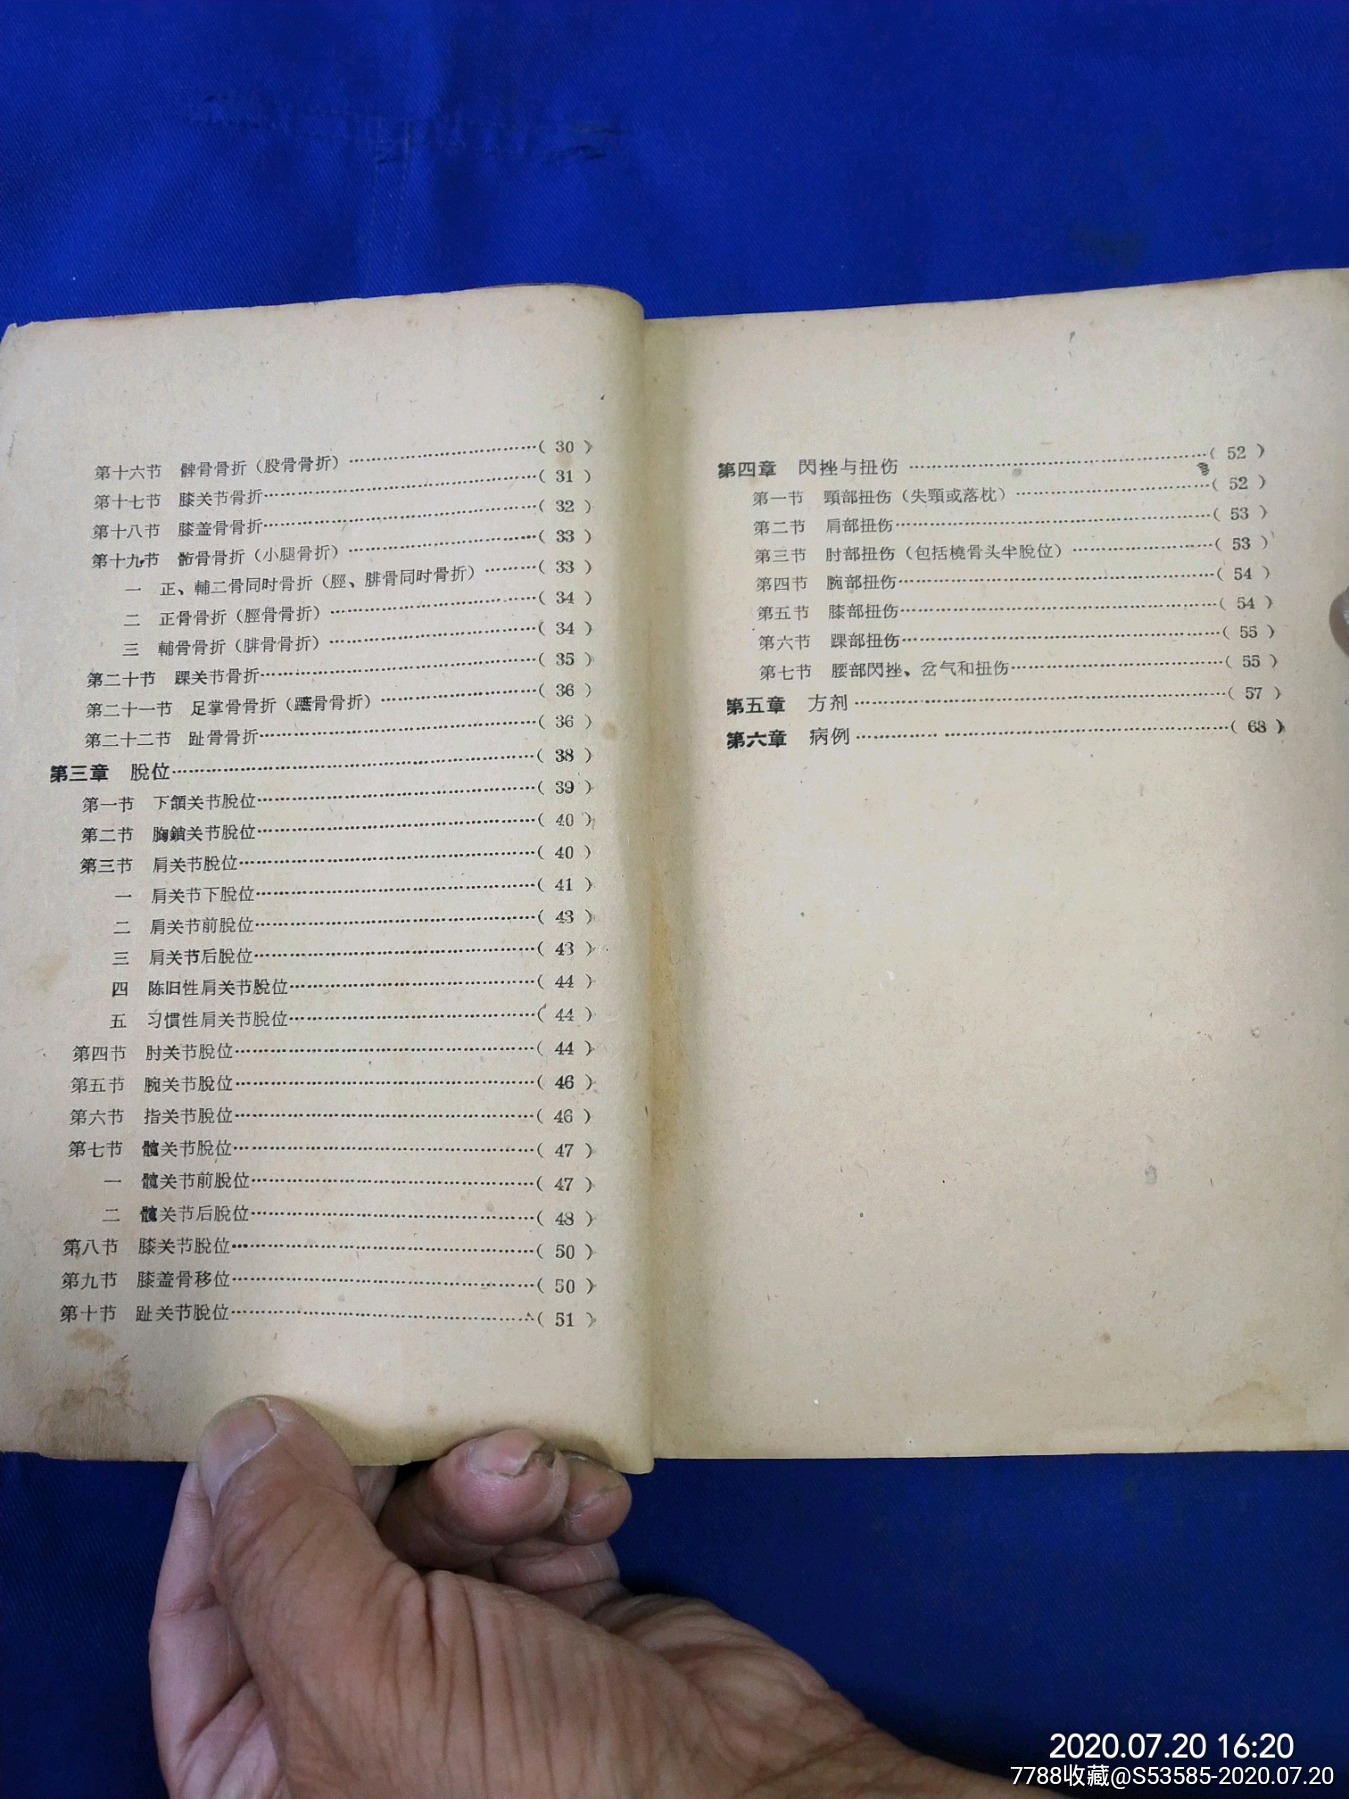 第十六节　髀骨骨折（股骨骨折）……………………( 30 )
第十七节　膝关节骨折……………………( 31 )
第十八节　膝盖骨骨折……………………( 32 )
第十九节　骱骨骨折（小腿骨折）……………………( 33 )
一　正、輔二骨同时骨折（脛、腓骨同时骨折）………( 33 )
二　正骨骨折（脛骨骨折）……………………( 34 )
三　輔骨骨折（腓骨骨折）……………………( 34 )
第二十节　踝关节骨折……………………( 35 )
第二十一节　足掌骨骨折（蹠骨骨折）……………………( 36 )
第二十二节　趾骨骨折……………………( 36 )
第三章　脫位……………………( 38 )
第一节　下頷关节脫位……………………( 39 )
第二节　胸鎖关节脫位……………………( 40 )
第三节　肩关节脫位……………………( 40 )
一　肩关节下脫位……………………( 41 )
二　肩关节前脫位……………………( 43 )
三　肩关节后脫位……………………( 43 )
四　陈旧性肩关节脫位……………………( 44 )
五　习慣性肩关节脫位……………………( 44 )
第四节　肘关节脫位……………………( 44 )
第五节　腕关节脫位……………………( 46 )
第六节　指关节脫位……………………( 46 )
第七节　髖关节脫位……………………( 47 )
一　髖关节前脫位……………………( 47 )
二　髖关节后脫位……………………( 48 )
第八节　膝关节脫位……………………( 50 )
第九节　膝盖骨移位……………………( 50 )
第十节　趾关节脫位……………………( 51 )
第四章　閃挫与扭伤……………………( 52 )
第一节　頸部扭伤（失頸或落枕）……………………( 52 )
第二节　肩部扭伤……………………( 53 )
第三节　肘部扭伤（包括橈骨头半脫位）……………………( 53 )
第四节　腕部扭伤……………………( 54 )
第五节　膝部扭伤……………………( 54 )
第六节　踝部扭伤……………………( 55 )
第七节　腰部閃挫、岔气和扭伤……………………( 55 )
第五章　方剂……………………( 57 )
第六章　病例……………………( 68 )
2020.07.20 16:20
7788收藏@S53585-2020.07.20